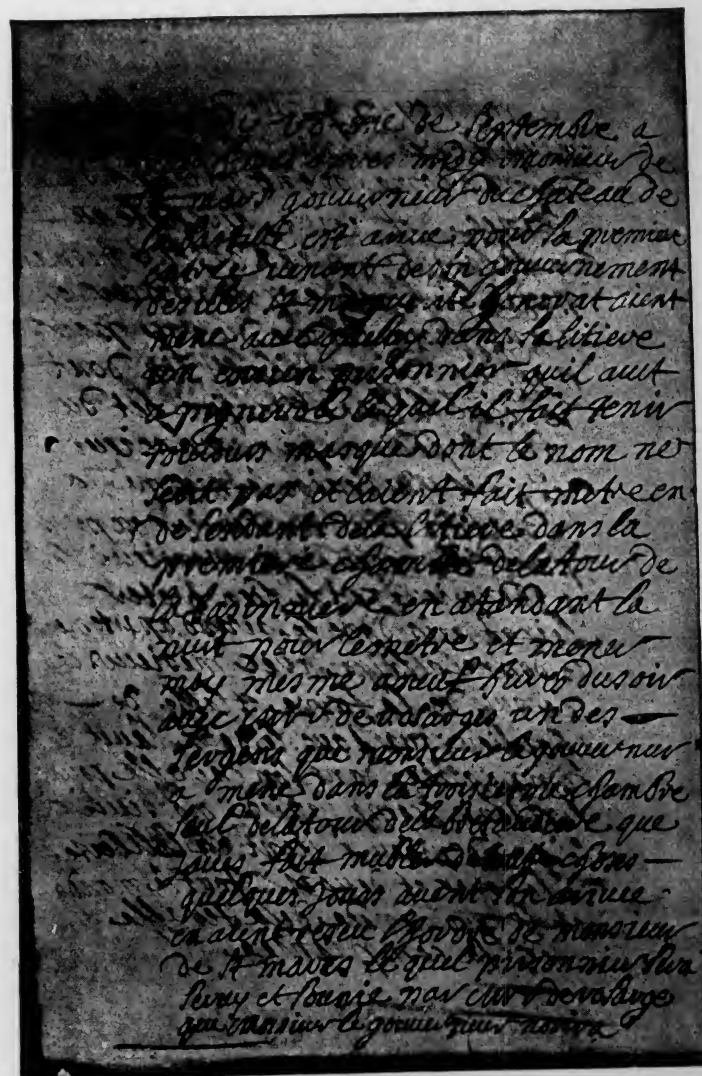 de septembre a
heures apres midy monsieur de
st mars gouuerneur du chateau de
la bastille est ariue pour sa premiere
entree venant de son gouuernement
des illes st
mene auecque luy dans sa litiere
un encien prisonnier quil auet
a pignerol le quel il fait tenir
touiours masque dont le nom ne
sedit pas et laient fait metre en
de sendant dela litiere dans la
premiere chambre delatour de
la basiniere en atandant la
nuit pour le metre et mener
moy mesme a neuf heures dusoir
auec de rosarges un des
sergens que monsieur le gouuerneur
a mene dans la troisieme chambre
seul delatour dela que
iauois fait meubler de choses
quelques jours auent son ariuee
en aient reseu lhordre de monsieur
de st mars le quel prisonnier sera
seruy et par de rosarge
que monsieur le gouuerneur